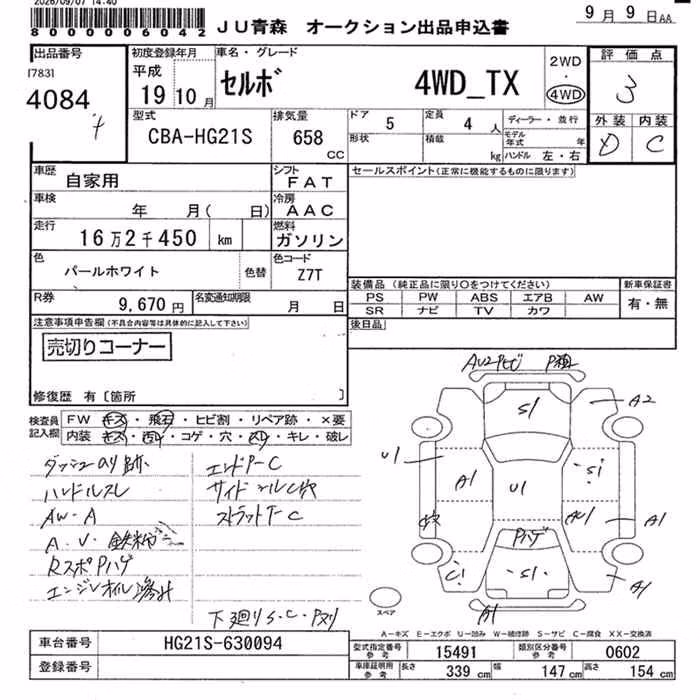 2026/09/07 14:40
8000006042
JU青森 オークション出品申込書
9月9日AA
出品番号
17831
4084
初度登録年月
平成
19 10月
車名・グレード
セルボ 4WD_TX
2WD
・
4WD
評価点
3
外装 内装
D C
型式
CBA-HG21S
排気量
658
CC
ドア 5
形状
定員 4 人
積載 kg
ディーラー・並行
モデル年式 年
ハンドル 左・右
車歴
自家用
シフト
FAT
セールスポイント(正常に機能するものに限ります)
車検
年 月( 日)
冷房
AAC
走行
16万2千450 km
燃料
ガソリン
色
パールホワイト
色替
色コード
Z7T
装備品(純正品に限り○をつけてください)
PS PW ABS エアB AW
SR ナビ TV カワ
新車保証書
有・無
R券
9,670円
名変通知期限
月 日
後日品
注意事項申告欄(不具合内容等は具体的に記入して下さい)
売切りコーナー
修復歴 有〔箇所 〕
検査員記入欄
FW キズ・飛石・ヒビ割・リペア跡・×要
内装 キズ・汚れ・コゲ・穴・スレ・キレ・破レ
ダッシュのり跡
ハンドルスレ
AW-A
A.V.鉄粉
RスポPハゲ
エンジンオイル滲み
エンドP-C
ストラットT-C
下廻りS.C.Pスリ
P ハゲ
A2
S1
U1
A1
S1
U1
A1
C1
S1
A1
A1
スペア
A-キズ E-エクボ U-凹み W-補修跡 S-サビ C-腐食 XX-交換済
車台番号
HG21S-630094
登録番号
型式指定番号
参考
15491
類別区分番号
参考
0602
車庫証明用
参考
長さ 339 cm 幅 147 cm 高さ 154 cm